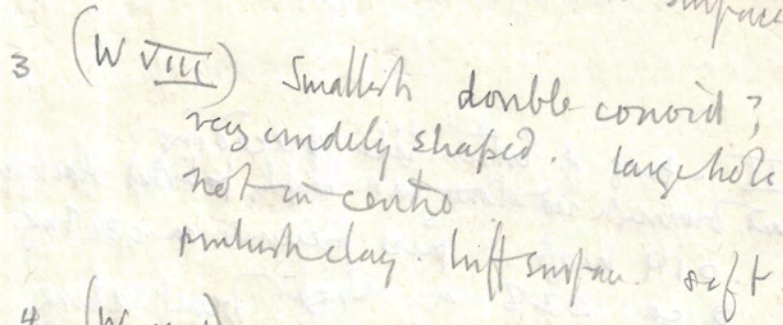 surface
3 (W VIII) Smallish double conoid ;
very crudely shaped. large hole
not in centre
pinkish clay. buff surface. soft.
4 (W